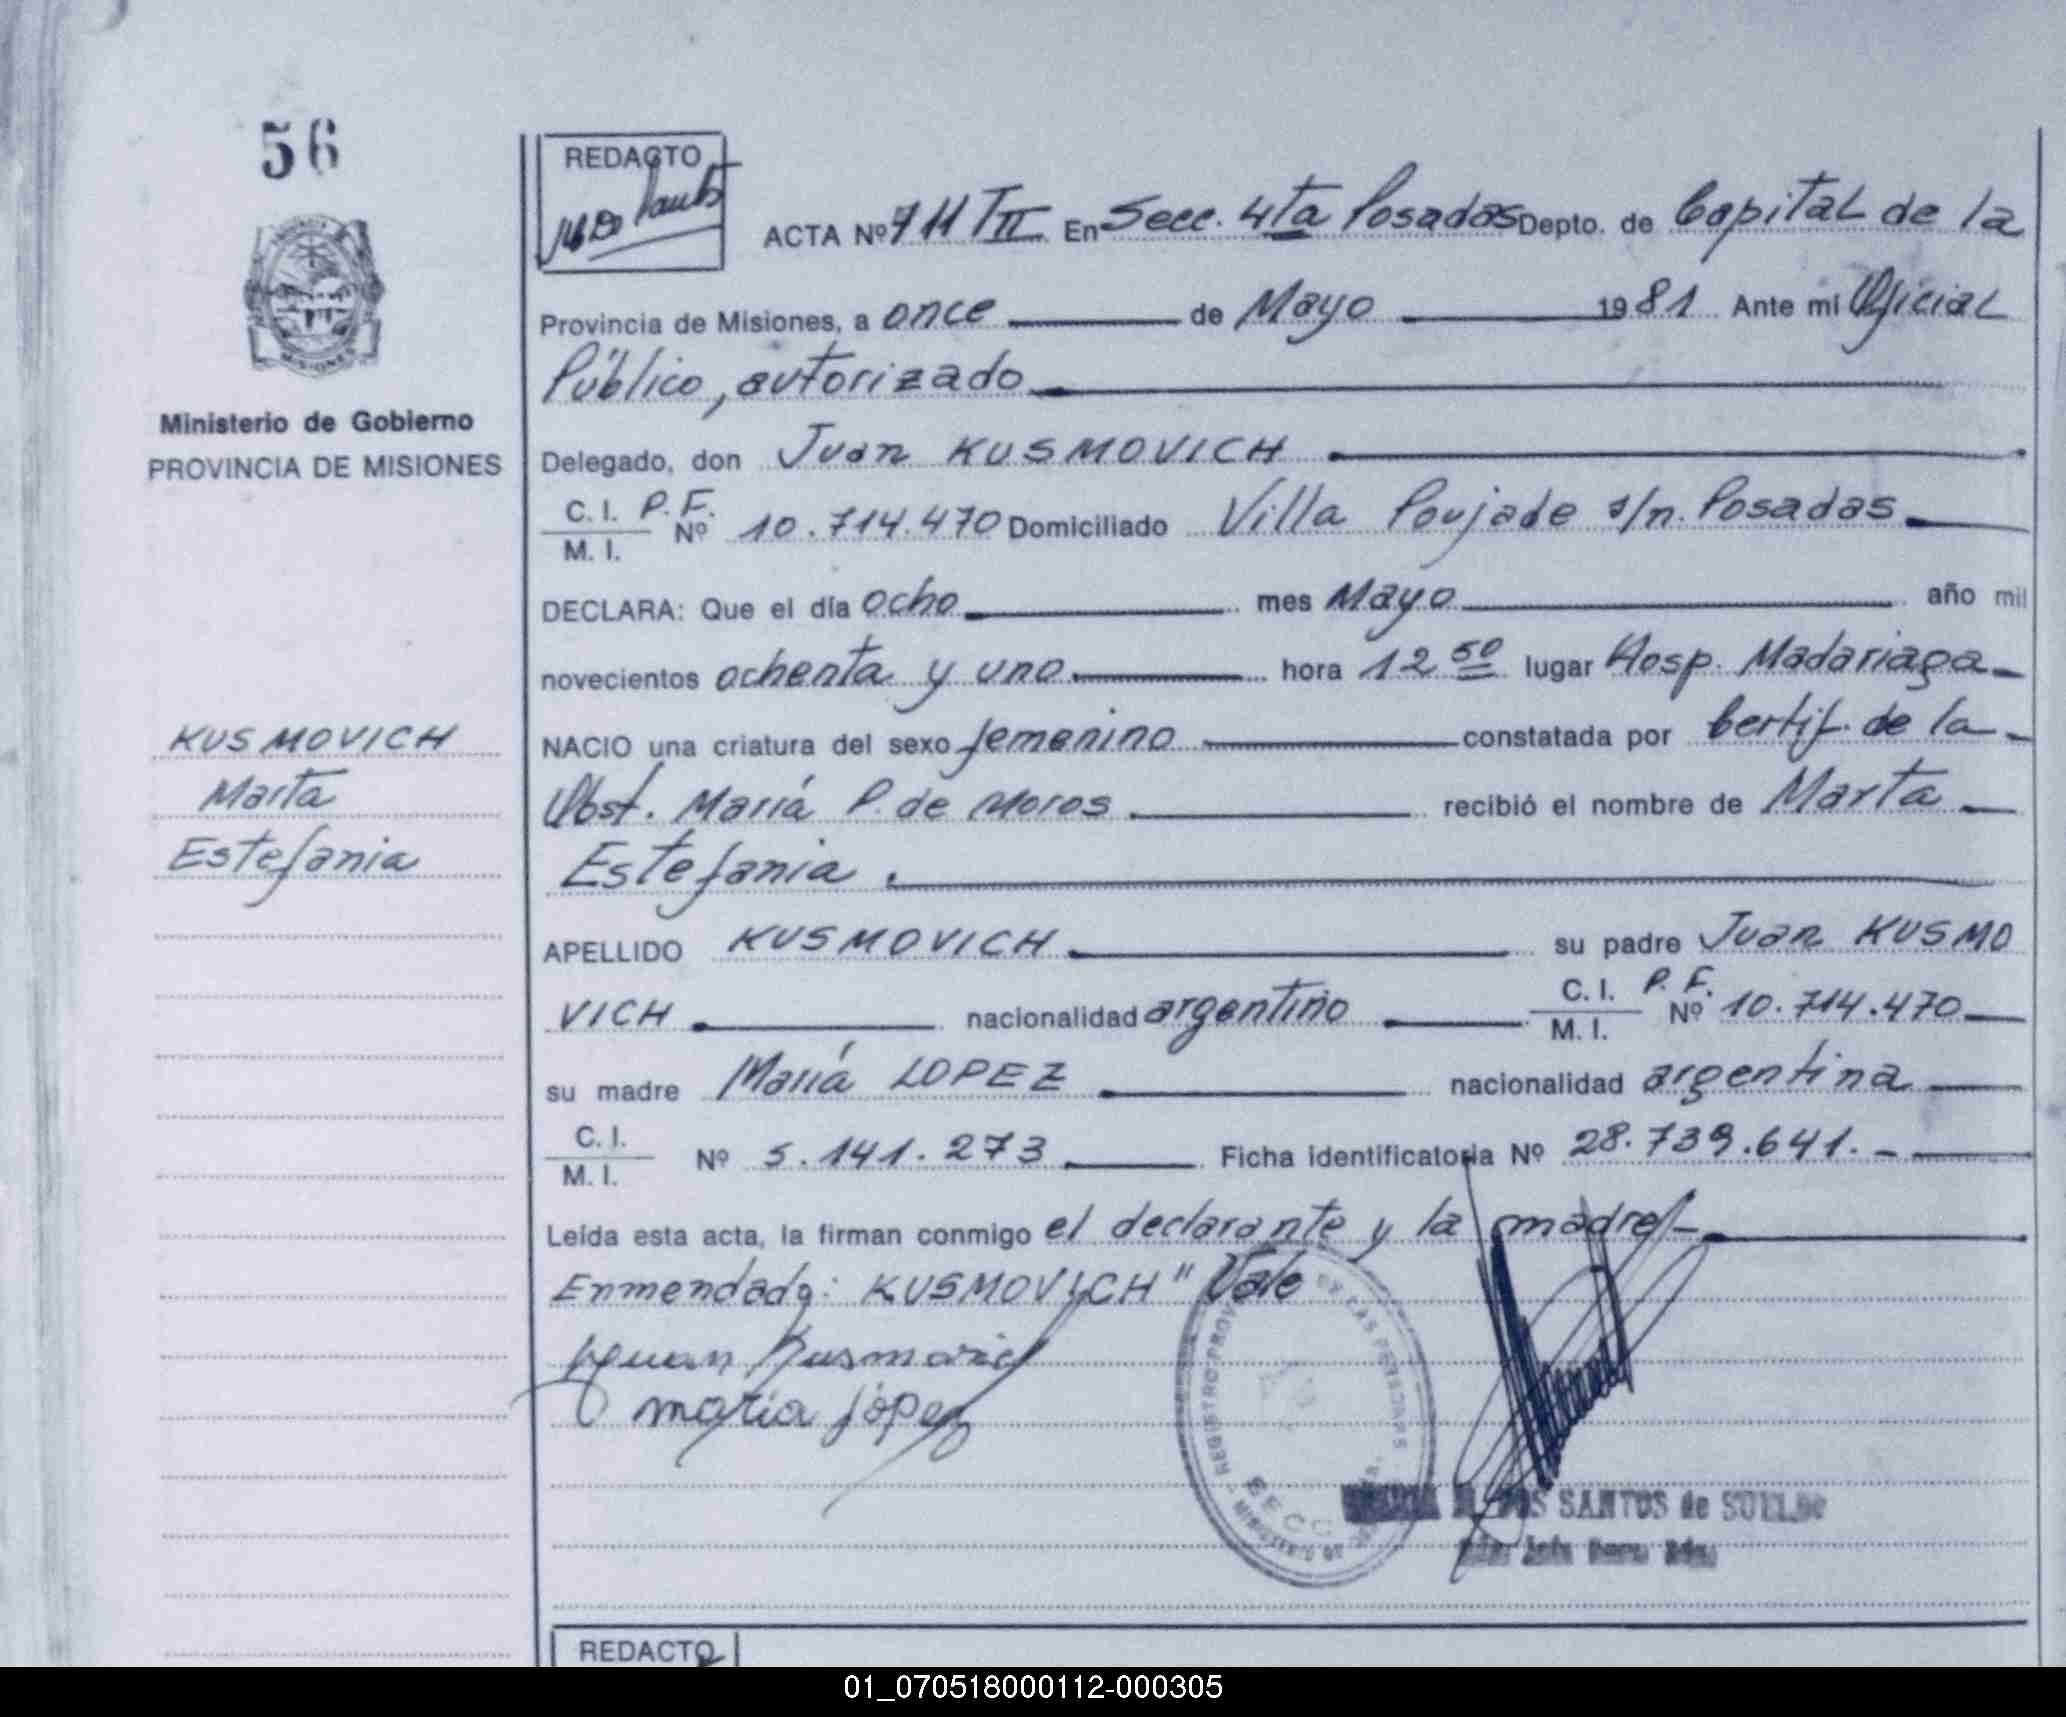 56
REDACTO
ACTA Nº 711 TII En Secc. 4ta Posadas Depto. de Capital de la
Provincia de Misiones, a once de Mayo 1981 Ante mi Oficial
Público, autorizado
Ministerio de Gobierno
PROVINCIA DE MISIONES
Delegado, don Juan KUSMOVICH
C. I. P. F.
M. I. Nº 10.714.470 Domiciliado Villa Poujade s/n. Posadas
DECLARA: Que el día ocho mes Mayo año mil
novecientos ochenta y uno hora 12 50 lugar Hosp. Madariaga
KUSMOVICH
Marta
Estefania
NACIO una criatura del sexo femenino constatada por Certif. de la
Obst. María P. de Moros recibió el nombre de Marta
Estefania.
APELLIDO KUSMOVICH su padre Juan KUSMO
VICH nacionalidad argentino C. I. P. F.
M. I. Nº 10.714.470
su madre María LOPEZ nacionalidad argentina
C. I.
M. I. Nº 5.141.273 Ficha identificatoria Nº 28.739.641.-
Leída esta acta, la firman conmigo el declarante y la madre
Enmendado: KUSMOVICH" Vale
Juan Kusmovich
maria lópez
REGISTRO PROV. DE LAS PERSONAS
SECC.
DOS SANTOS de SUELDO
REDACTO
01_070518000112-000305